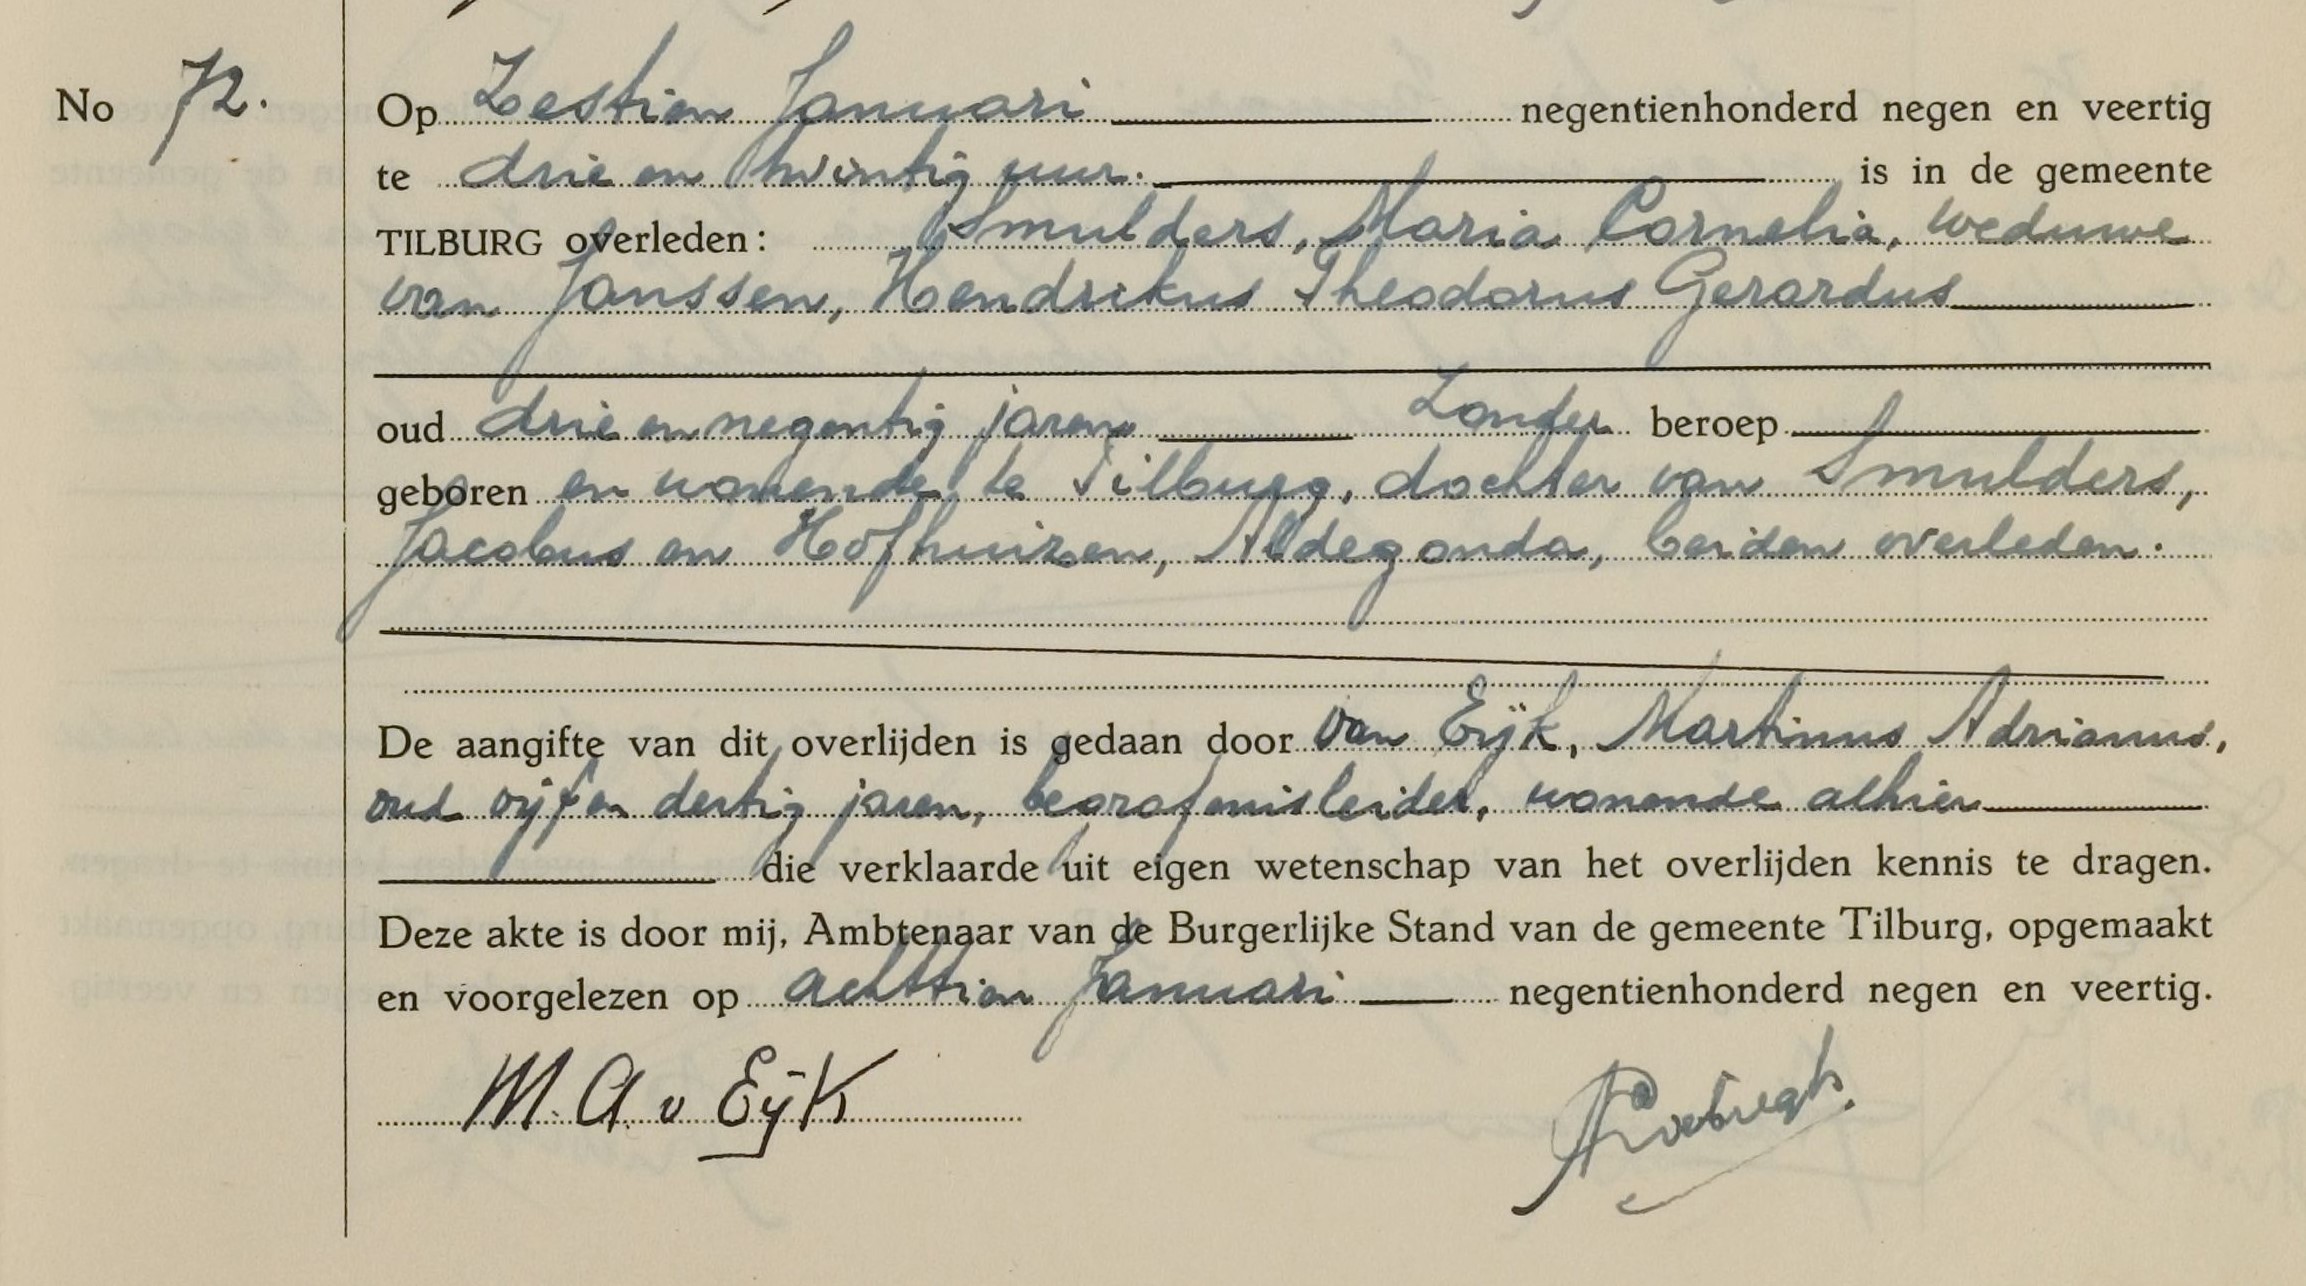 No 72.
Op Zestien Januari negentienhonderd negen en veertig
te drie en twintig uur. is in de gemeente
TILBURG overleden: Smulders, Maria Cornelia, weduwe
van Janssen, Hendrikus Theodorus Gerardus
oud drie en negentig jaren Zonder beroep
geboren en wonende te Tilburg, dochter van Smulders,
Jacobus en Hofhuizen, Aldegonda, beiden overleden.
De aangifte van dit overlijden is gedaan door van Eijk, Martinus Adrianus,
oud vijf en dertig jaren, begrafenisleider, wonende alhier
die verklaarde uit eigen wetenschap van het overlijden kennis te dragen.
Deze akte is door mij, Ambtenaar van de Burgerlijke Stand van de gemeente Tilburg, opgemaakt
en voorgelezen op achttien Januari negentienhonderd negen en veertig.
M. A v Eijk